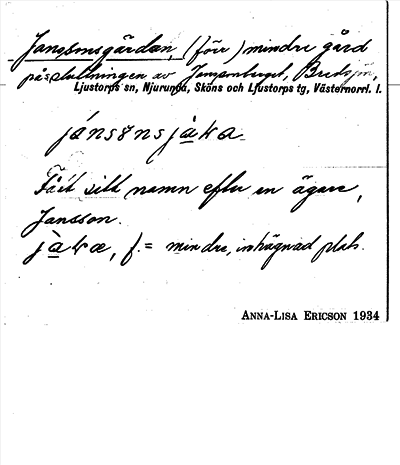 Janssonsgärdan, (förr) mindre gård
på sluttningen av Jamsenberget, Bredsjön,
Ljustorps sn, Njurunda, Sköns och Ljustorps tg, Västernorrl. l.
jánsønsjàka
Fått sitt namn efter en ägare,
Jansson.
jàkæ, f. = mindre, inhägnad plats.
ANNA-LISA ERICSON 1934